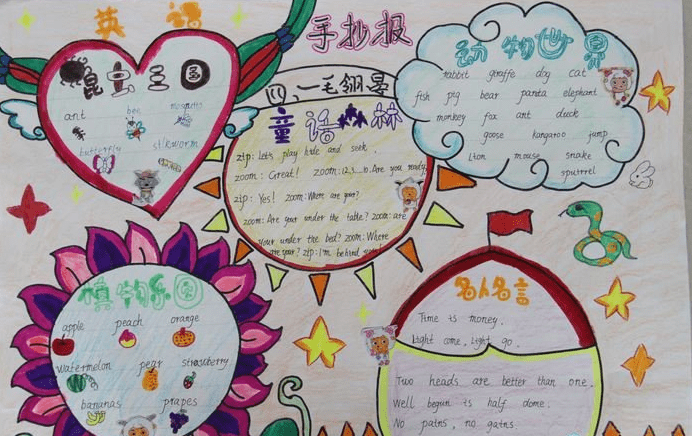 英语
手抄报
昆虫王国
ant bee mosquito
butterfly silkworm
童话
zip: Let's play hide and seek.
zoom: Great! zoom: 1.2.3...10. Are you ready
zip: Yes! zoom: Where are your?
zoom: Are your under the table? zoom: are
your under the bed? zoom: Where
are your? zip: I'm behind
动物世界
rabbit giraffe dog cat
fish pig bear panta elephant
monkey fox ant duck
goose kangaroo jump
Lion mouse snake
squirrel
植物乐园
apple peach orange
watermelon pear strawberry
bananas grapes
名人名言
Time is money.
Light come, Light go.
Two heads are better than one.
Well begun is half dome.
No pains, no gains